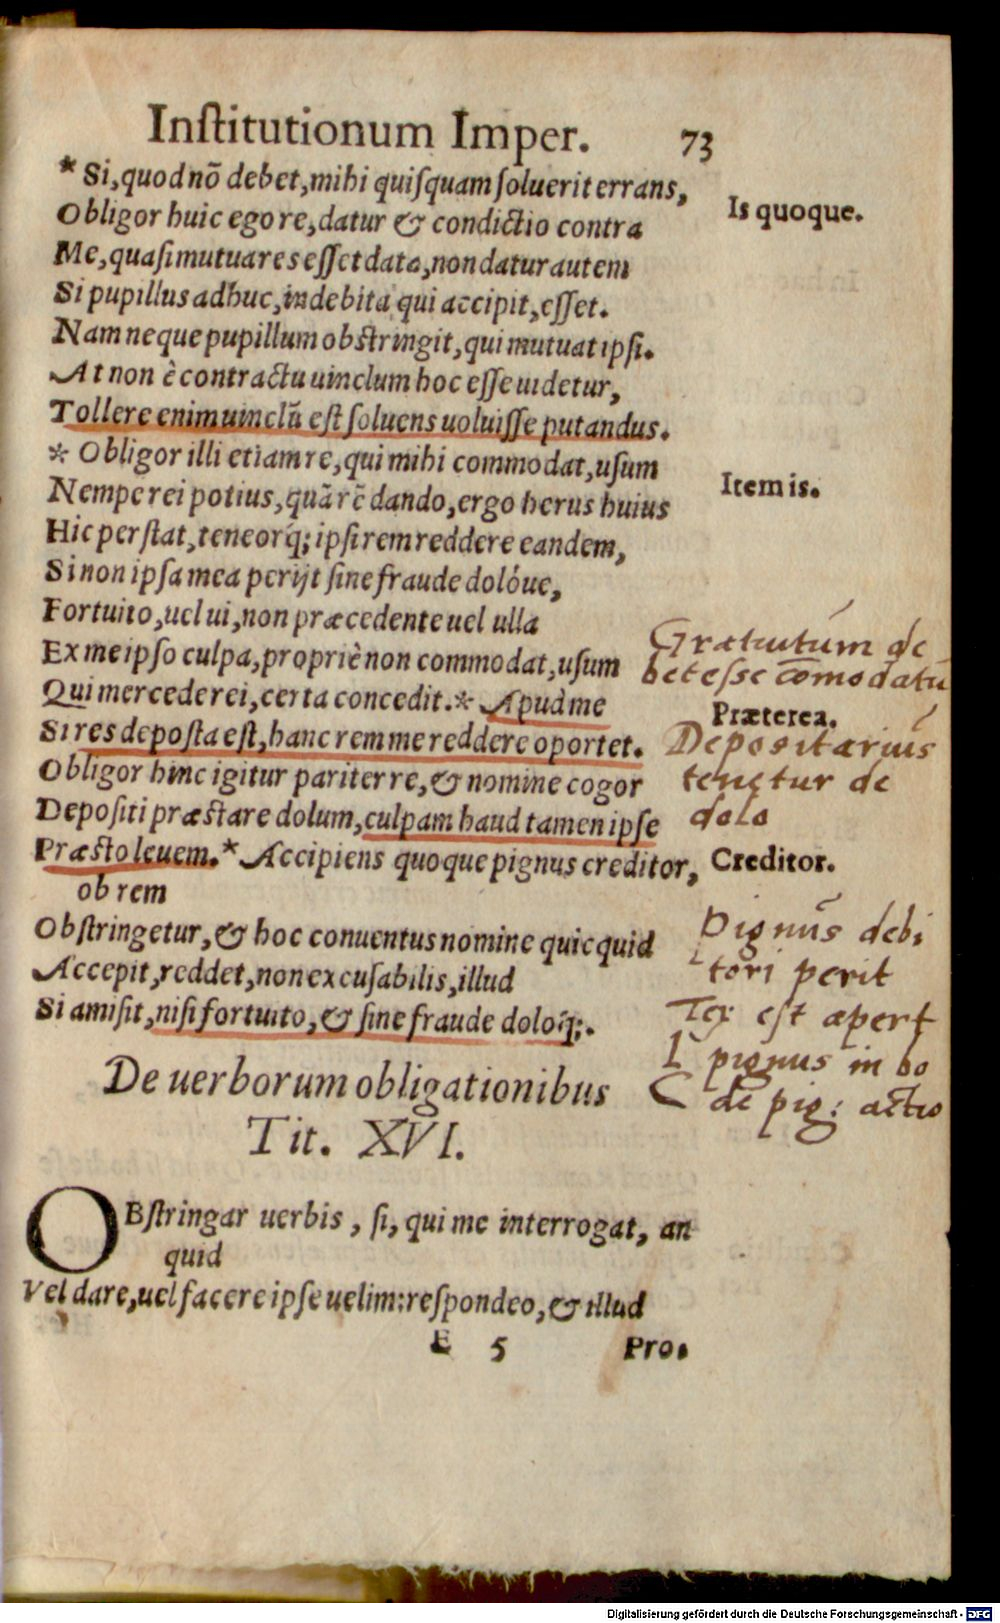 Inſtitutionum Imper. 73
* Si, quod nõ debet, mihi quiſquam ſoluerit errans,
Is quoque.
Obligor huic ego re, datur & condictio contra
Me, quaſi mutua res eſſet data, non datur autem
Si pupillus adhuc, indebita qui accipit, eſſet.
Nam neque pupillum obſtringit, qui mutuat ipſi.
At non è contractu uinclum hoc eſſe uidetur,
Tollere enim uinclũ eſt ſoluens uoluiſſe putandus.
* Obligor illi etiam re, qui mihi commodat, uſum
Item is.
Nempe rei potius, quã rẽ dando, ergo herus huius
Hic perſtat, teneorq́; ipſi rem reddere eandem,
Si non ipſa mea perijt ſine fraude dolóue,
Fortuito, uel ui, non præcedente uel ulla
Ex me ipſo culpa, propriè non commodat, uſum
Grætuitúm de
betesse cõmodatũ
Qui mercede rei, certa concedit. * Apud me
Præterea.
Si res depoſta eſt, hanc rem me reddere oportet.
Depositæriús
Obligor hinc igitur pariter re, & nomine cogor
tenetur de
Depoſiti præſtare dolum, culpam haud tamen ipſe
dolo
Præſto leuem. * Accipiens quoque pignus creditor,
Creditor.
ob rem
Obſtringetur, & hoc conuentus nomine quicquid
Pignús debi
Accepit, reddet, non excuſabilis, illud
tori perit
Si amiſit, niſi fortuito, & ſine fraude doloq́;.
Tex est apert
De uerborum obligationibus
L pignus in bo
C de pig: actio
Tit. XVI.
OBſtringar uerbis, ſi, qui me interrogat, an
quid
Vel dare, uel facere ipſe uelim: reſpondeo, & illud
E 5 Pro.
Digitalisierung gefördert durch die Deutsche Forschungsgemeinschaft - DFG